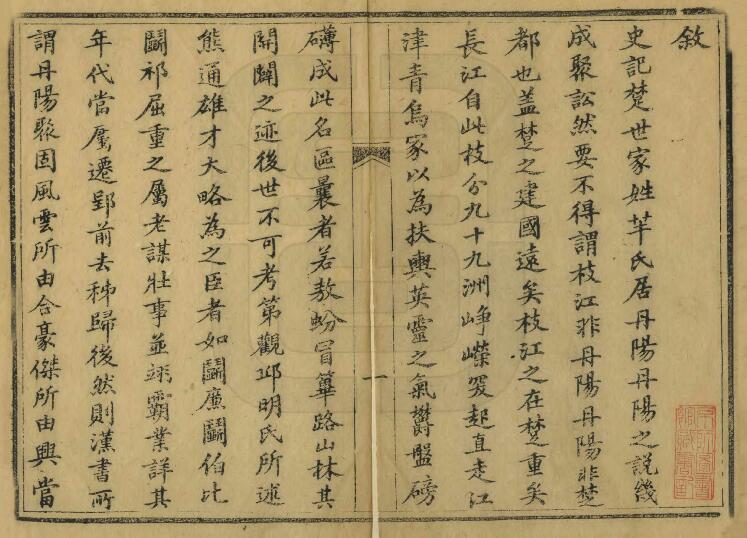 敘
史記楚世家姓羋氏居丹陽丹陽之說幾
成聚訟然要不得謂枝江非丹陽丹陽非楚
都也盖楚之建國遠矣枝江之在楚重矣
長江自此枝分九十九洲崢嶸突起直走江
津青烏家以為扶輿英靈之氣欝盤磅
礴成此名區曩者若敖蚡冒篳路山林其
開闢之迹後世不可考第觀邱明氏所述
熊通雄才大略為之臣者如鬬廉鬬伯比
鬬祁屈重之屬老謀壯事並翊霸業詳其
年代當屬遷郢前去秭歸後然則漢書所
謂丹陽聚固風雲所由合豪傑所由興當
一